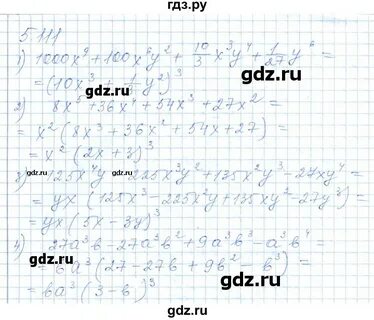 гдз.ру
5.111
1) 1000x⁹ + 100x⁶y² + 10/3 x³y⁴ + 1/27 y⁶ =
= (10x³ + 1/3 y²)³
2) 8x⁵ + 36x⁴ + 54x³ + 27x² =
= x² (8x³ + 36x² + 54x + 27) =
= x² (2x + 3)³
3) 125x⁴y - 225x³y² + 135x²y³ - 27xy⁴ =
= yx (125x³ - 225x²y + 135xy² - 27y³) =
= yx (5x - 3y)³
4) 27a³b - 27a³b² + 9a³b³ - a³b⁴ =
= ba³ (27 - 27b + 9b² - b³) =
= ba³ (3 - b)³
gdz.ru
gdz.ru
gdz.ru
gdz.ru
gdz.ru
gdz.ru
gdz.ru